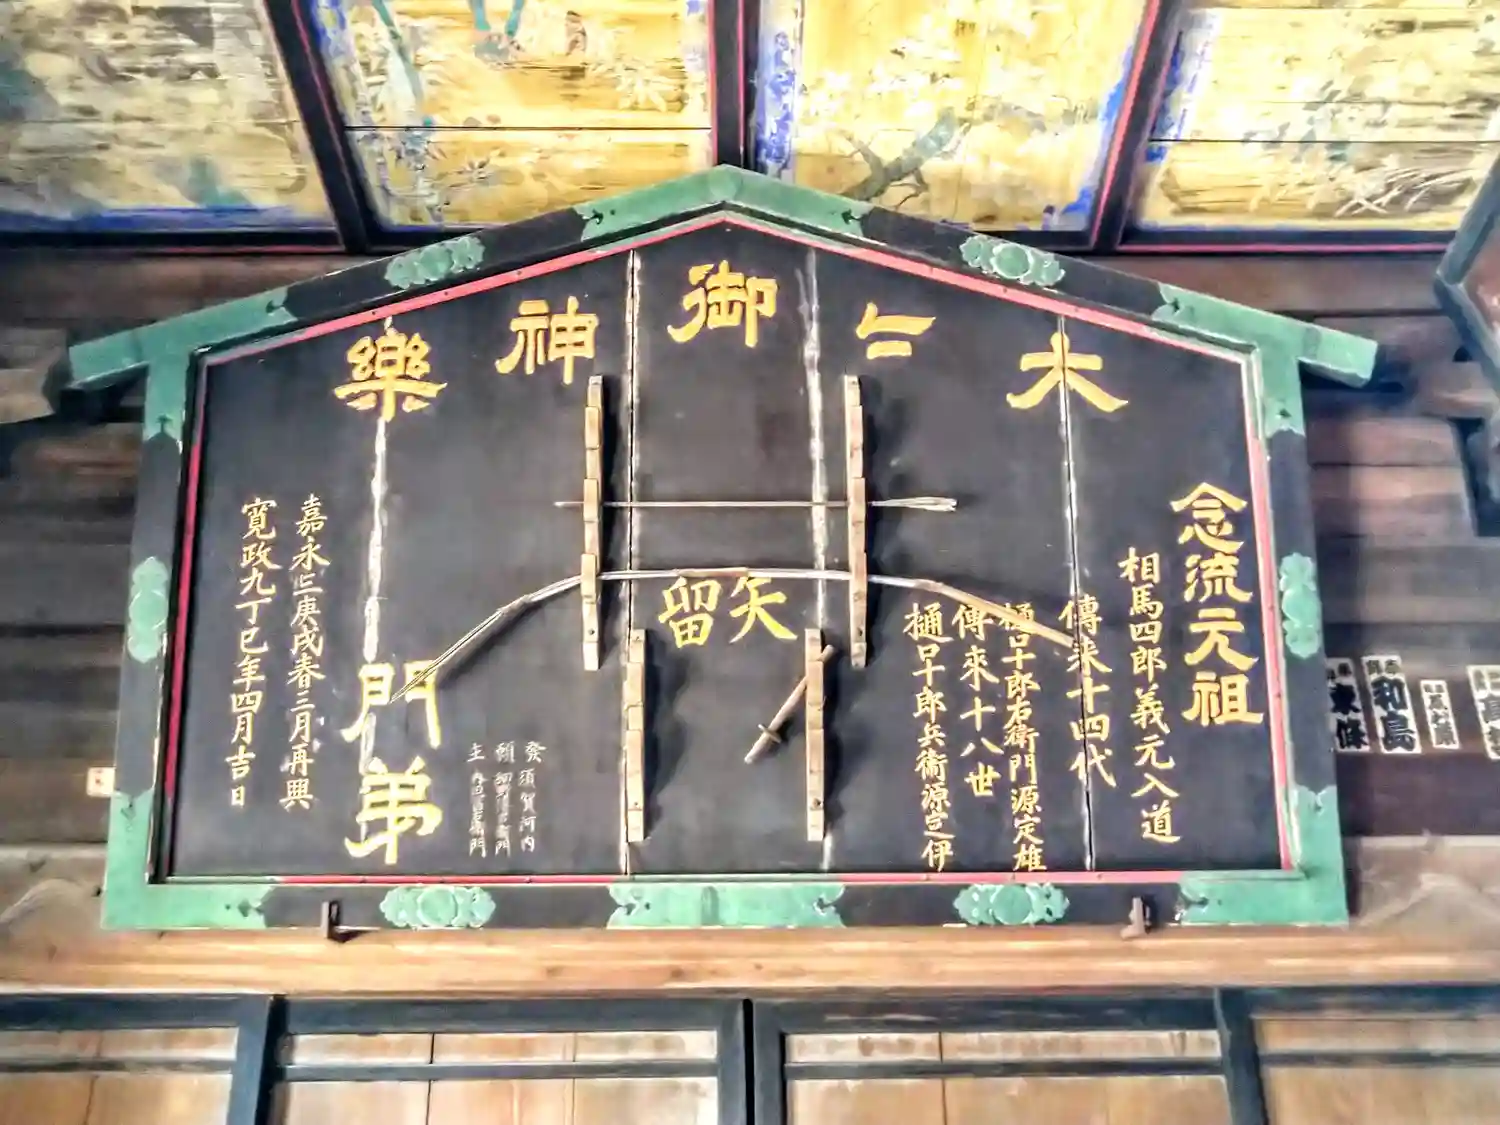 大〻御神樂
念流元祖
相馬四郎義元入道
傳来十四代
樋口十郎右衛門源定雄
傳來十八世
樋口十郎兵衞源定伊
矢留
門弟
發 須賀河内
願
主
嘉永三庚戌春三月再興
寛政九丁巳年四月吉日
東條
和島